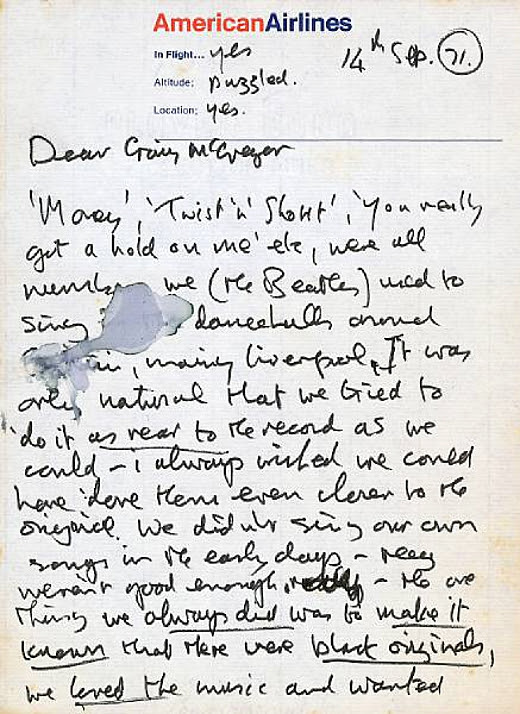 AmericanAirlines
In Flight... yes
14th Sep. 71.
Altitude: puzzled.
Location: yes.
Dear Craig McGregor
'Money', 'Twist 'n' Shout', 'You really
got a hold on me' etc, were all
numbers we (the Beatles) used to
sing dancehalls around
ain, mainly Liverpool. It was
only natural that we tried to
do it as near to the record as we
could - i always wished we could
have done them even closer to the
original. We didn't sing our own
songs in the early days - they
weren't good enough - the one
thing we always did was to make it
known that there were black originals,
we loved the music and wanted